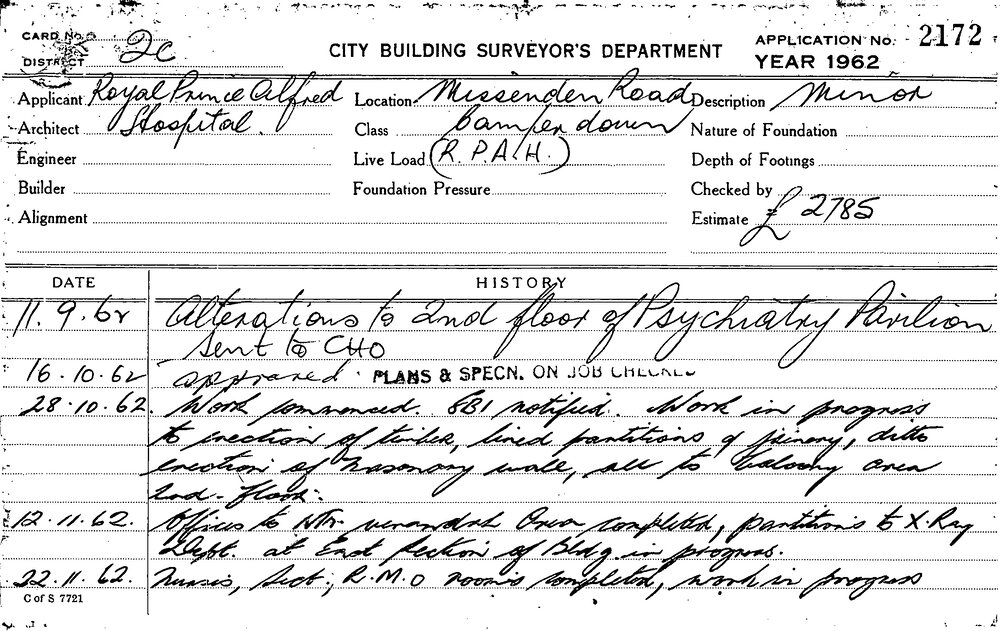 CARD No.
DISTRICT 2c
CITY BUILDING SURVEYOR'S DEPARTMENT
APPLICATION No. 2172
YEAR 1962
Applicant Royal Prince Alfred Location Missenden Road Description Minor
Architect Hospital. Class Camperdown Nature of Foundation
Engineer Live Load (R.P.A.H.) Depth of Footings
Builder Foundation Pressure Checked by
Alignment Estimate £ 2785
DATE HISTORY
11.9.62 Alterations to 2nd floor of Psychiatry Pavilion
sent to CHO
16.10.62 approved. PLANS & SPECN. ON JOB CHECKED
28.10.62. Work commenced. SBI notified. Work in progress
to erection of timber, lined partitions & joinery, ditto
erection of masonary wall, all to balcony area
2nd. floor.
12.11.62. Offices to Nth. verandah Area completed, partitions to X.Ray
Dept. at End Section of Bldg in progress.
22.11.62. Nurses, Sect, R.M.O rooms completed, work in progress
C of S 7721